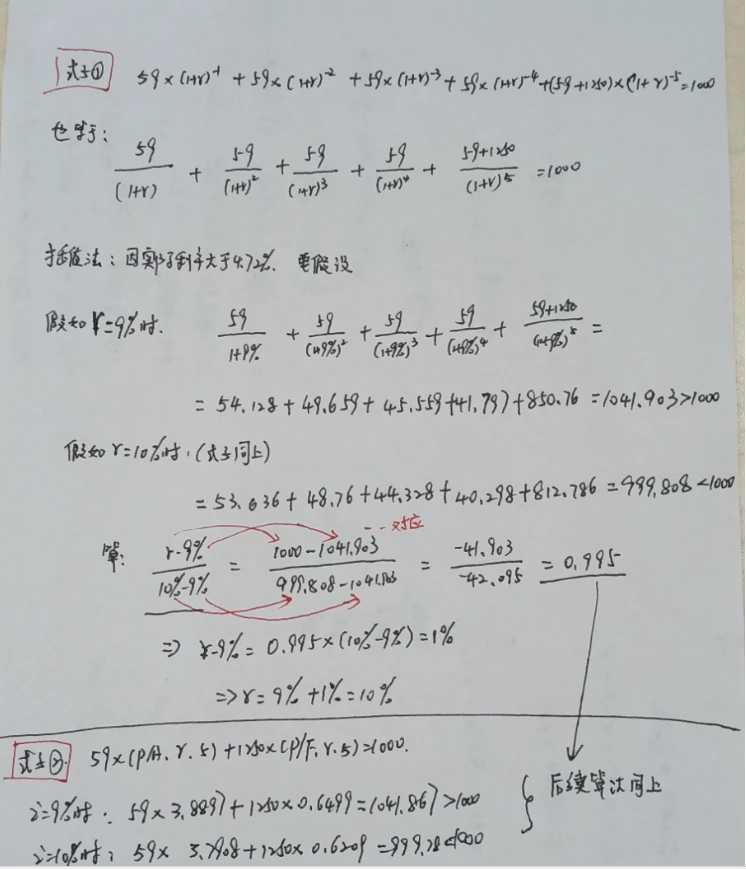 式子① 59×(1+r)⁻¹ + 59×(1+r)⁻² + 59×(1+r)⁻³ + 59×(1+r)⁻⁴ + (59+1250)×(1+r)⁻⁵ = 1000
也等于:
59/(1+r) + 59/(1+r)² + 59/(1+r)³ + 59/(1+r)⁴ + 59+1250/(1+r)⁵ = 1000
插值法: 因实际利率大于4.72%. 要假设
假如r=9%时. 59/1+9% + 59/(1+9%)² + 59/(1+9%)³ + 59/(1+9%)⁴ + 59+1250/(1+9%)⁵ =
= 54.128 + 49.659 + 45.559 + 41.797 + 850.76 = 1041.903 > 1000
假如r=10%时.(式子同上)
= 53.636 + 48.76 + 44.328 + 40.298 + 812.786 = 999.808 < 1000
--对应
算: r-9%/10%-9% = 1000-1041.903/999.808-1041.903 = -41.903/-42.095 = 0.995
=> r-9% = 0.995×(10%-9%) = 1%
=> r = 9% + 1% = 10%
式子②. 59×(P/A.r.5) + 1250×(P/F.r.5) = 1000.
i=9%时: 59×3.8897 + 1250×0.6499 = 1041.867 > 1000
i=10%时: 59×3.7908 + 1250×0.6209 = 999.78 < 1000
后续算法同上